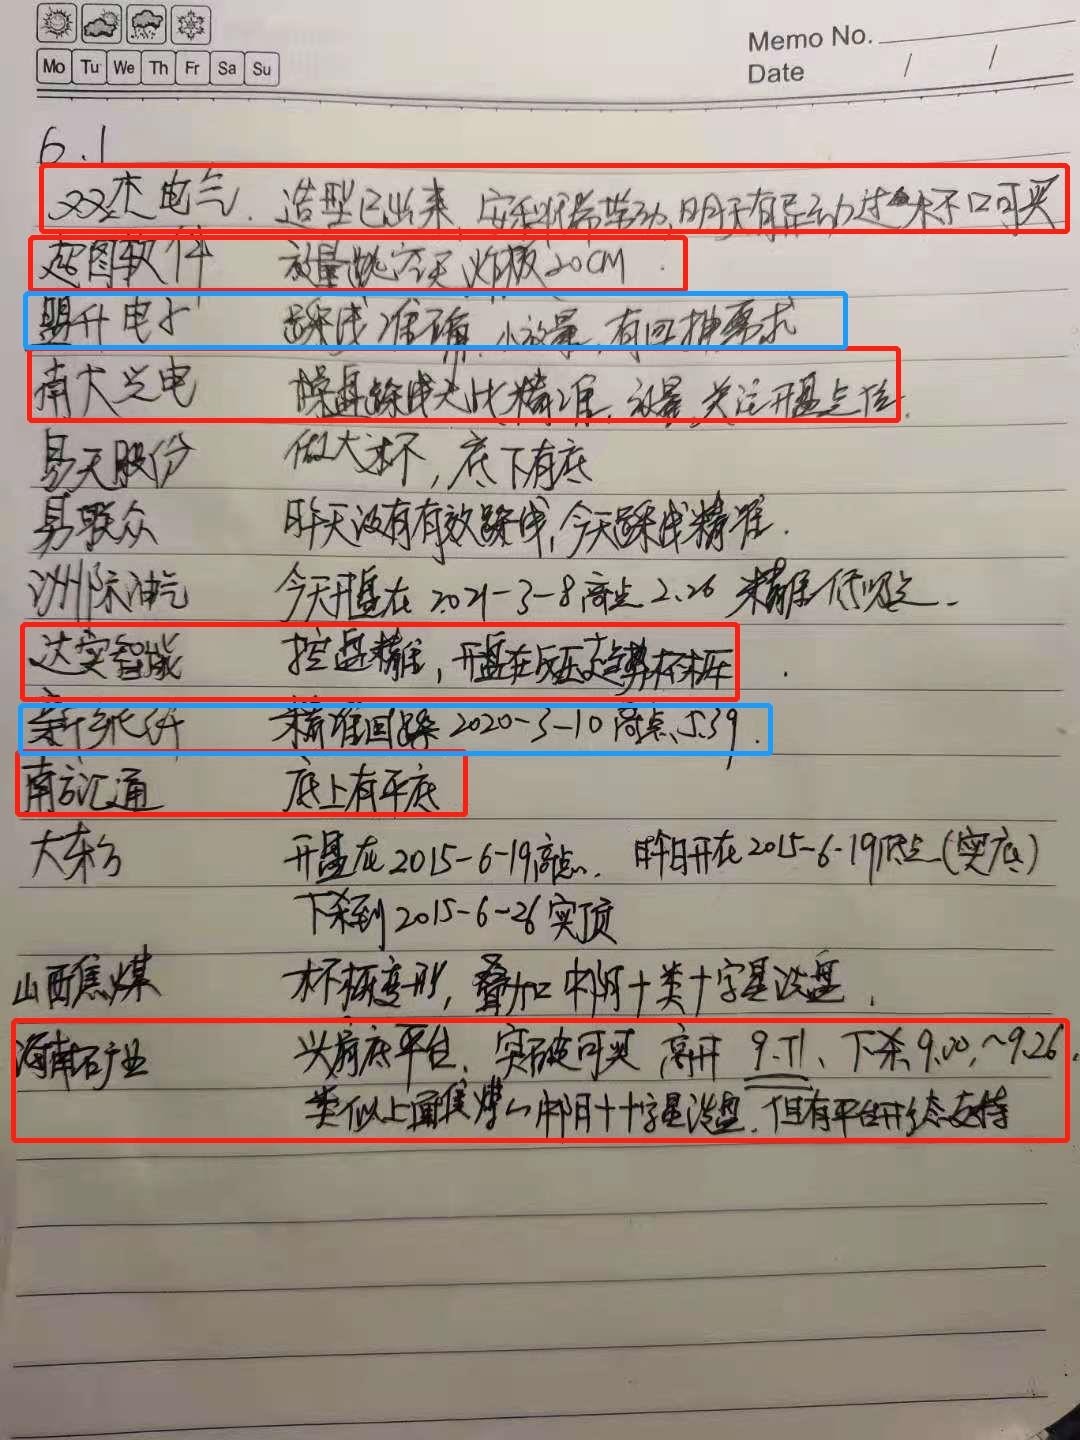 Memo No.
Mo Tu We Th Fr Sa Su
Date / /
6.1
双杰电气. 造型已出来, 带动, 明天有异动过杯口可买
超图软件 放量跳空 炸板20CM.
盟升电子 踩线准确, 小放量, 有回抽需求
南大光电 操盘踩线 比精准, 放量, 关注开盘点位.
易天股份 做大杯, 底下有底
易联众 昨天没有有效踩线, 今天踩线精准.
洲际油气 今天开盘在2021-3-8高点2.26 精准
达实智能 控盘精准, 开盘在反压 趋势杯柄.
精准回踩2020-3-10高点5.39.
南方汇通 底上有平底
大东方 开盘在2015-6-19高点. 昨日开在2015-6-19低点(实底)
下杀到2015-6-26实顶
山西焦煤 杯柄变形, 叠加中阴十类十字星洗盘.
海南矿业 头肩底平台, 突破可买 高开9.71、下杀9.00,~9.26.
类似上面焦煤 中阴十十字星洗盘, 但有平台形态支持